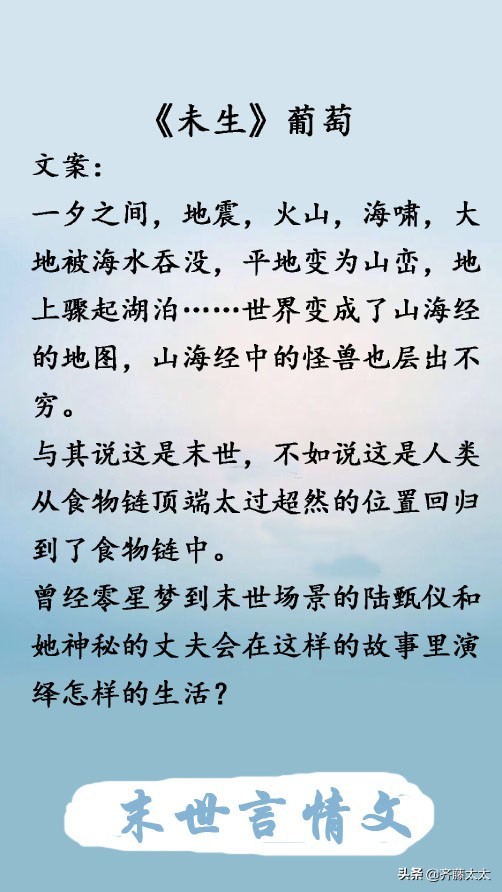 《未生》葡萄
文案：
一夕之间，地震，火山，海啸，大
地被海水吞没，平地变为山峦，地
上骤起湖泊……世界变成了山海经
的地图，山海经中的怪兽也层出不
穷。
与其说这是末世，不如说这是人类
从食物链顶端太过超然的位置回归
到了食物链中。
曾经零星梦到末世场景的陆甄仪和
她神秘的丈夫会在这样的故事里演
绎怎样的生活？
末世言情文
头条 @齐藤太太